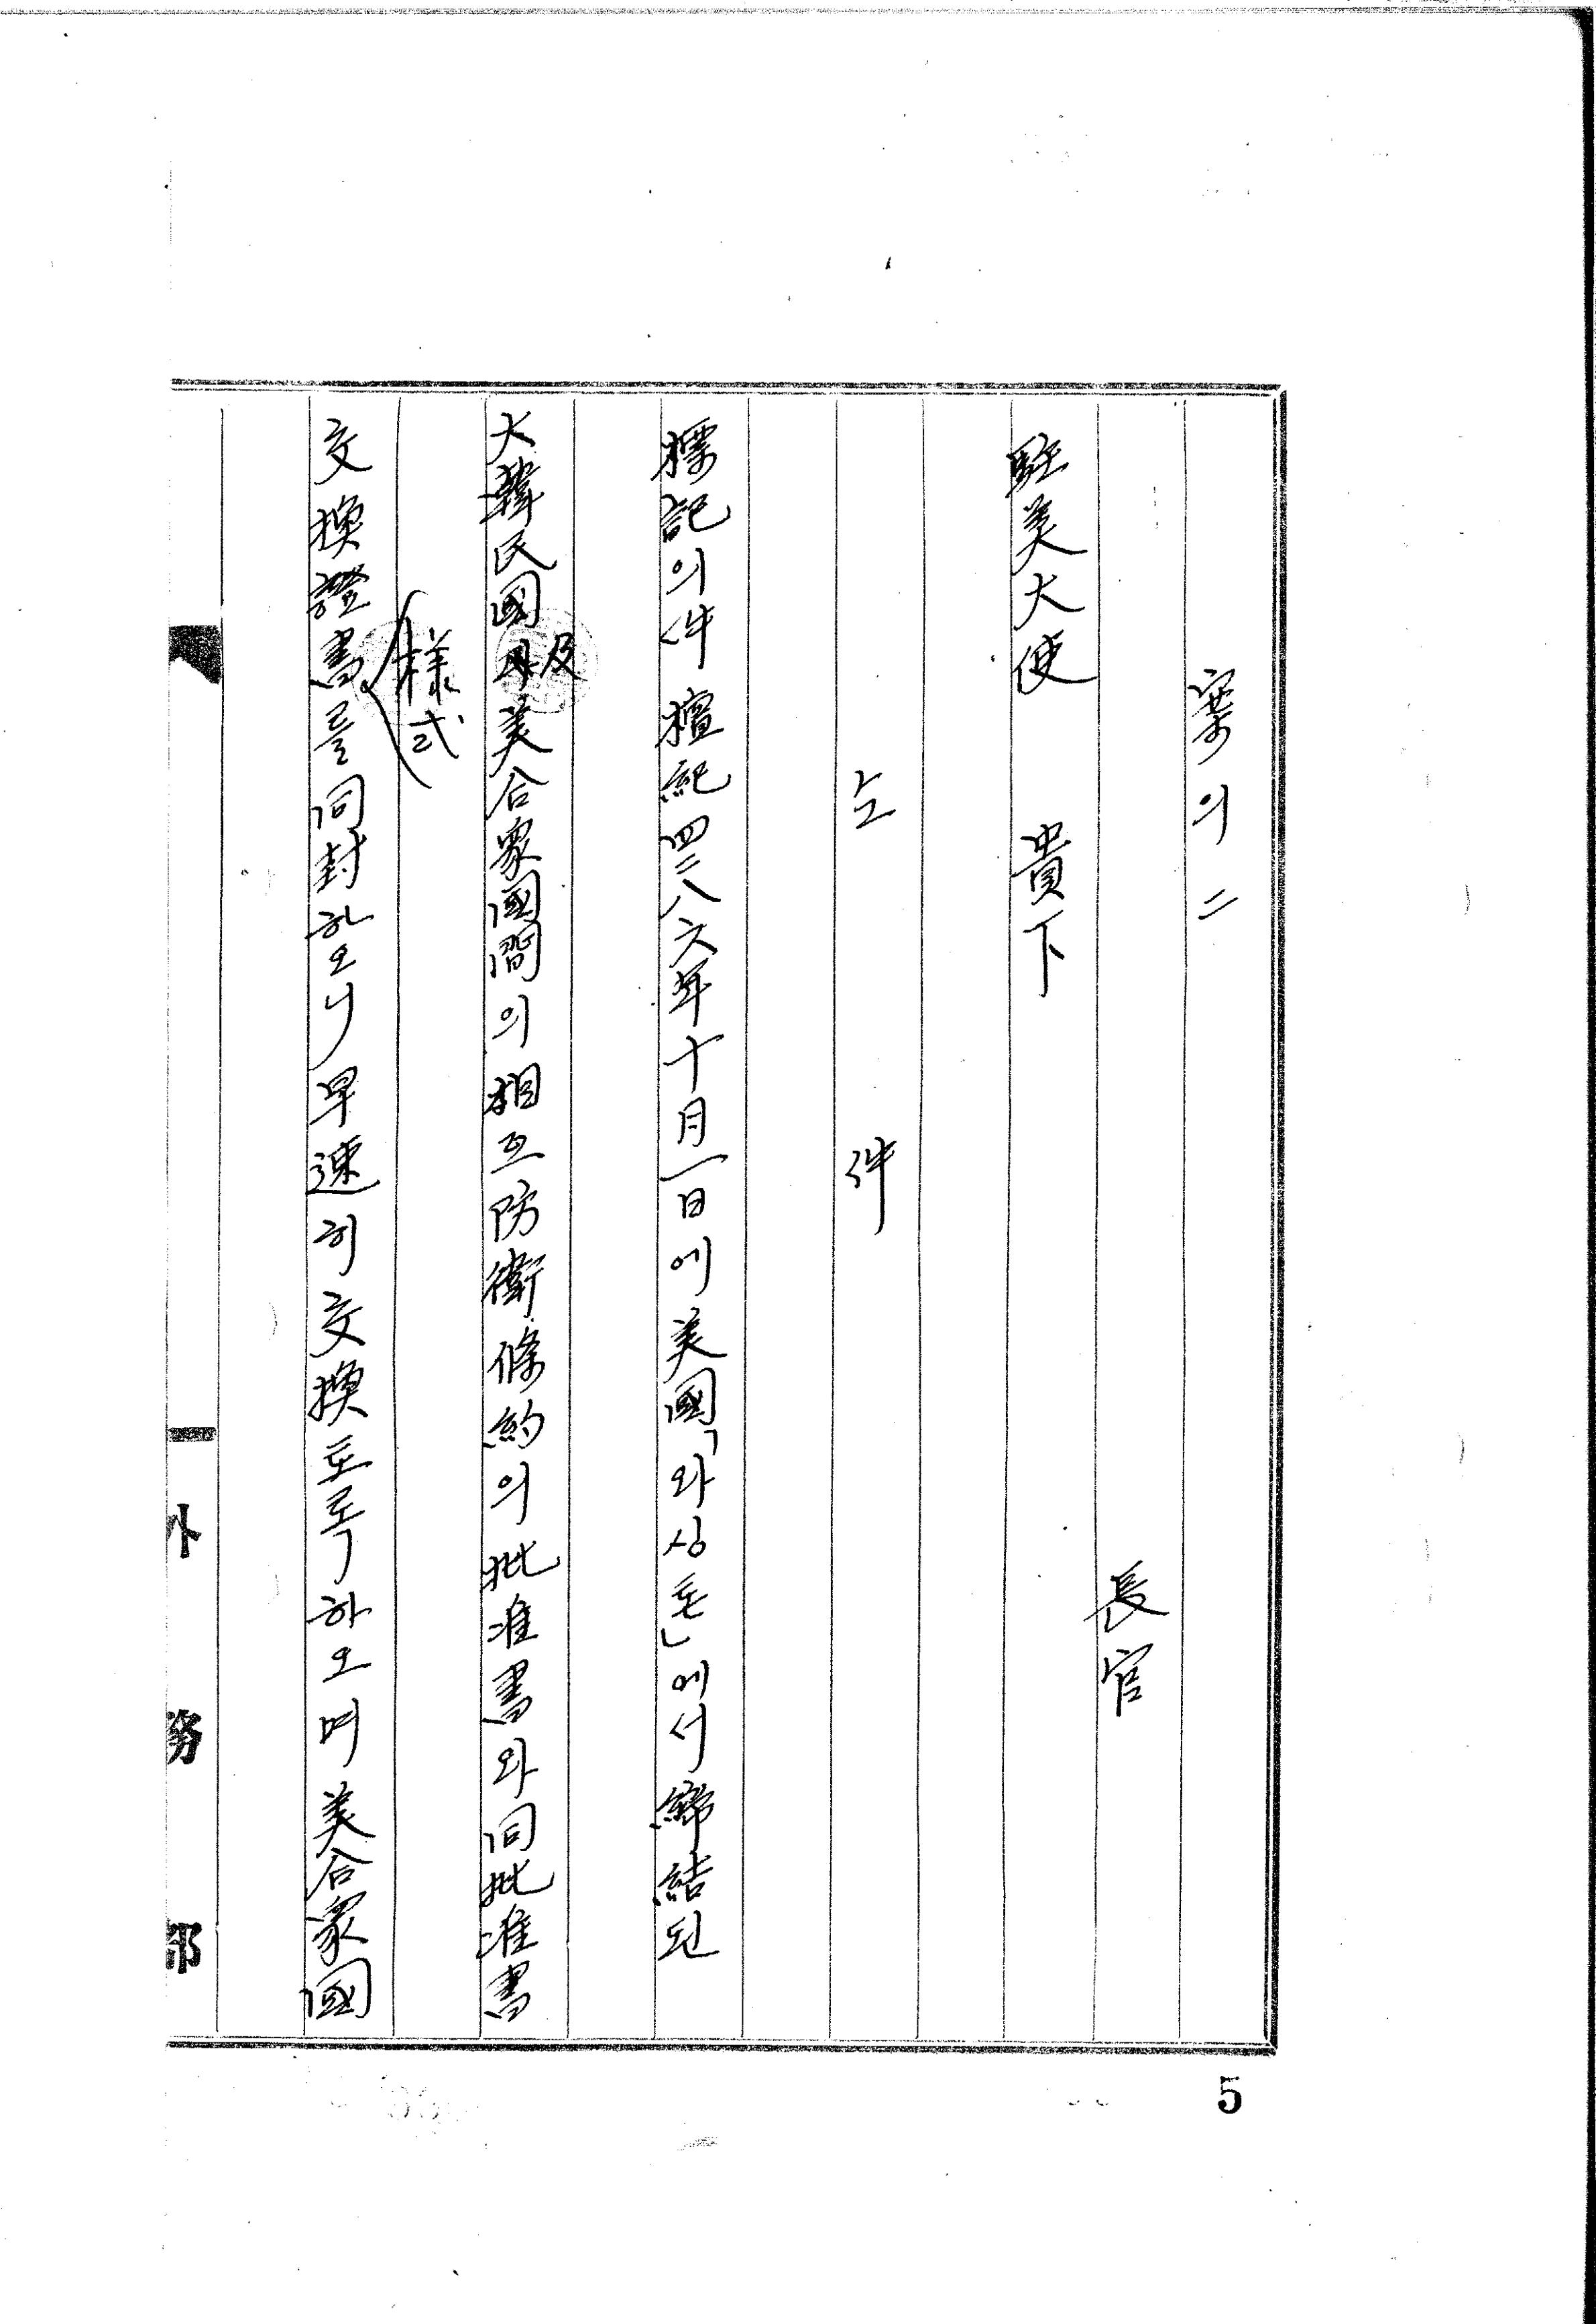 案의二
長官
駐美大使 貴下
仝 件
標記의件 檀紀四二八六年十月一日에美國「와싱톤」에서締結된
大韓民國及美合衆國間의相互防衛條約의批准書와同批准書
樣式
交換證書를同封하오니早速히交換토록하오며美合衆國
外務部
5